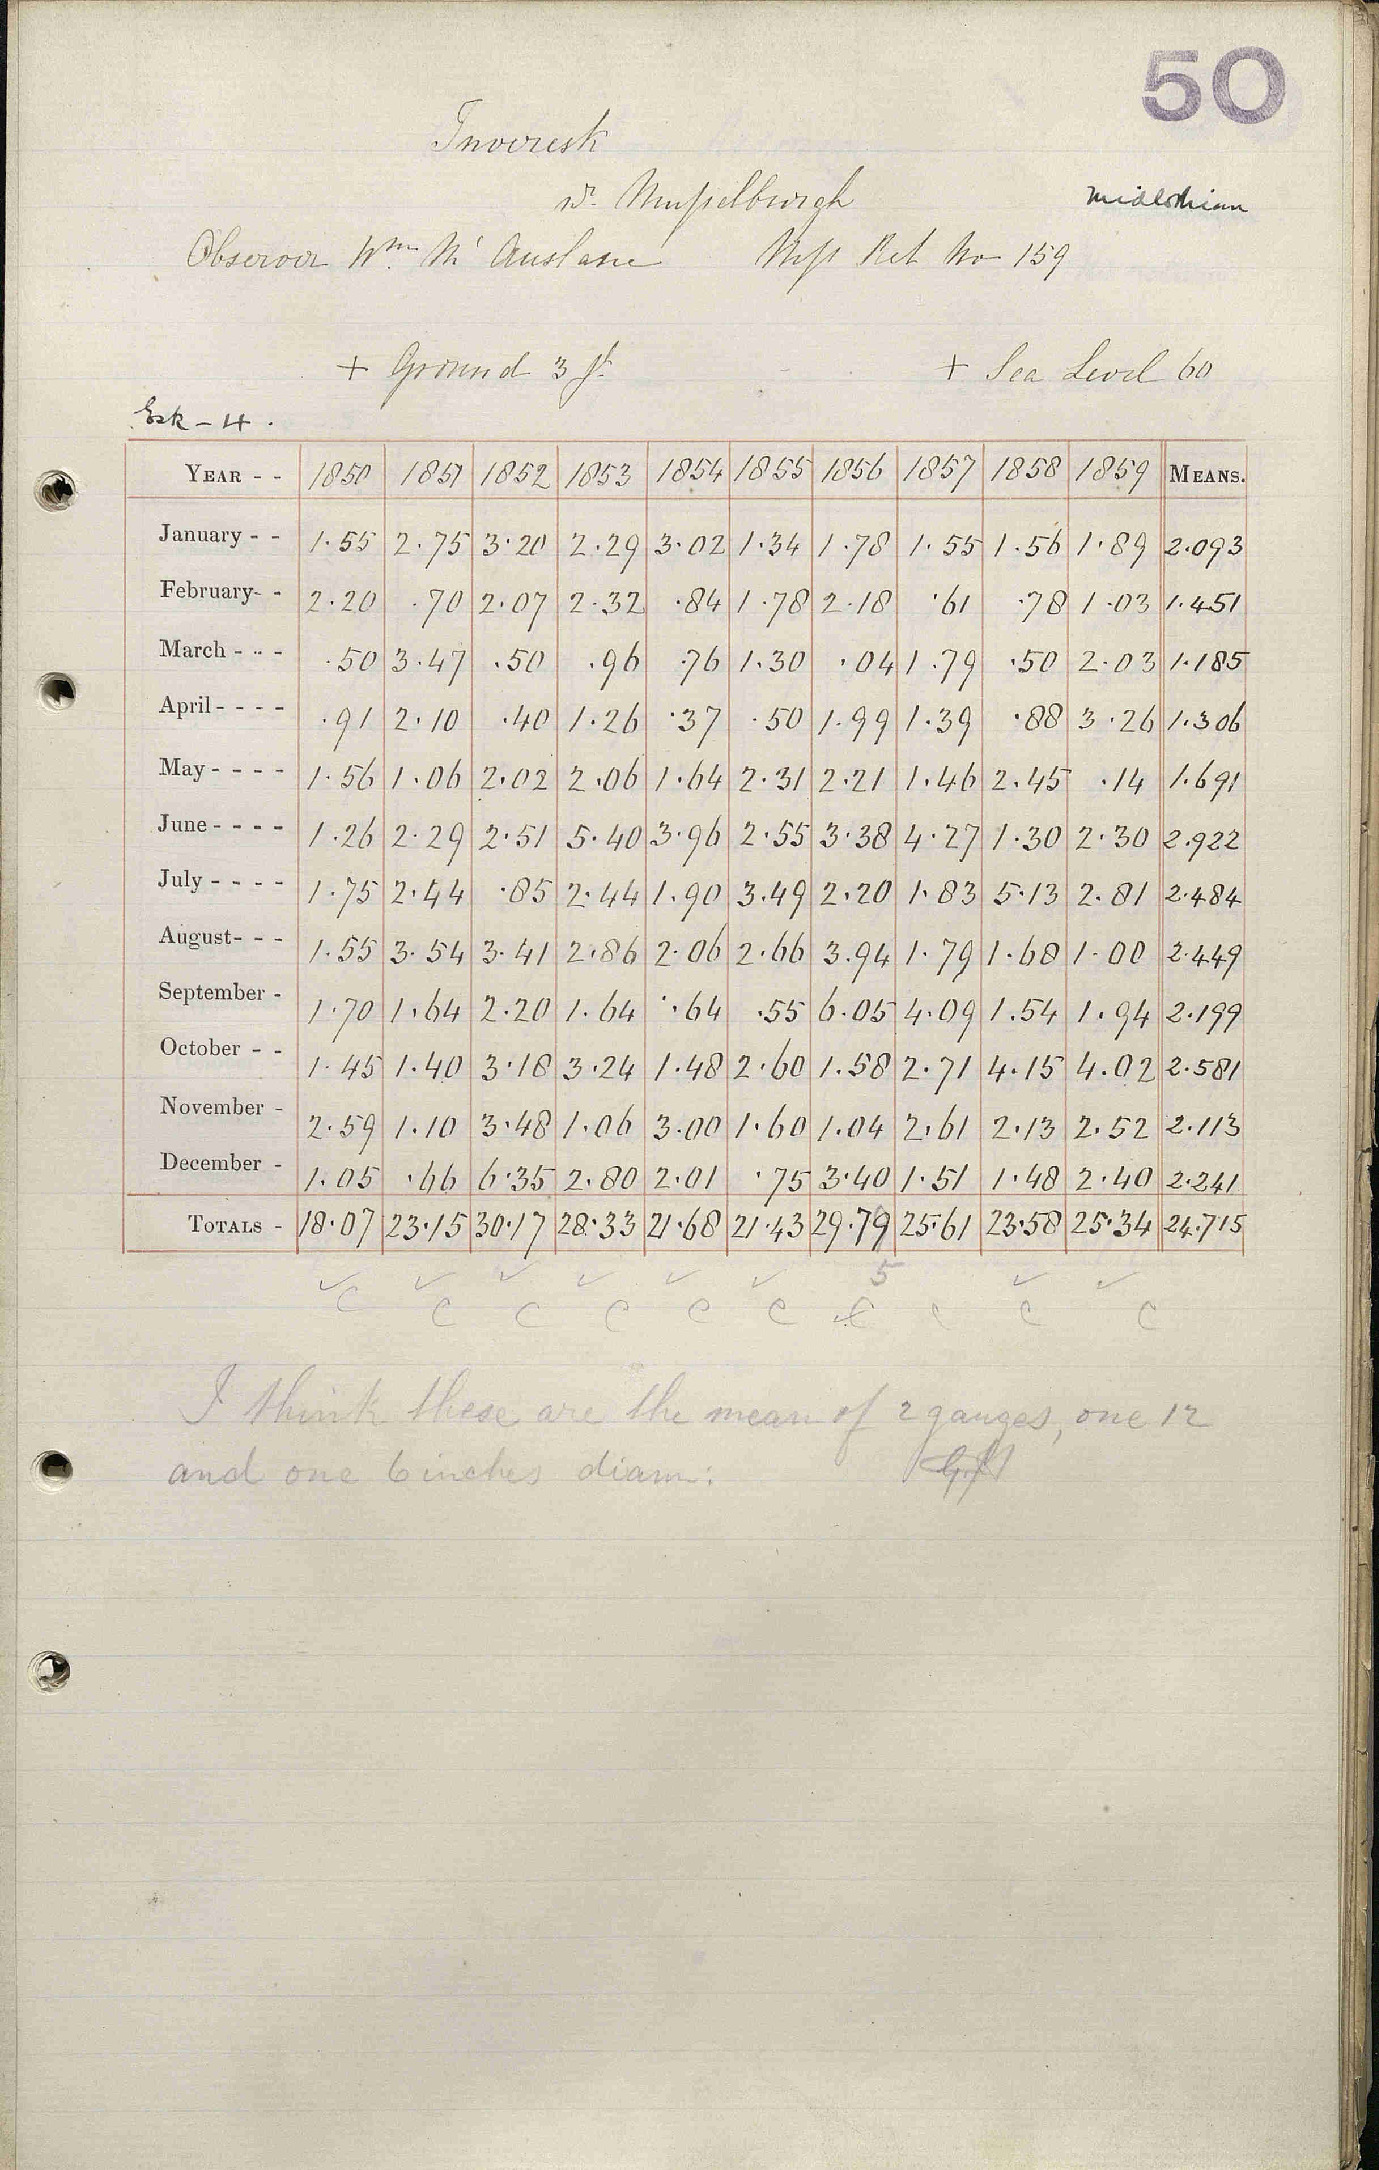 50
Inveresk
nr. Musselburgh
Midlothian
Observer Wm. Mc Auslane Mss Ret No 159
+ Ground 3 ft + Sea Level 60
Esk - 4.
YEAR - - 1850 1851 1852 1853 1854 1855 1856 1857 1858 1859 MEANS.
January - - 1.55 2.75 3.20 2.29 3.02 1.34 1.78 1.55 1.56 1.89 2.093
February- - 2.20 .70 2.07 2.32 .84 1.78 2.18 .61 .78 1.03 1.451
March - - - .50 3.47 .50 .96 .76 1.30 .04 1.79 .50 2.03 1.185
April - - - - .91 2.10 .40 1.26 .37 .50 1.99 1.39 .88 3.26 1.306
May - - - - 1.56 1.06 2.02 2.06 1.64 2.31 2.21 1.46 2.45 .14 1.691
June - - - - 1.26 2.29 2.51 5.40 3.96 2.55 3.38 4.27 1.30 2.30 2.922
July - - - - 1.75 2.44 .85 2.44 1.90 3.49 2.20 1.83 5.13 2.81 2.484
August- - - 1.55 3.54 3.41 2.86 2.06 2.66 3.94 1.79 1.68 1.00 2.449
September - 1.70 1.64 2.20 1.64 .64 .55 6.05 4.09 1.54 1.94 2.199
October - - 1.45 1.40 3.18 3.24 1.48 2.60 1.58 2.71 4.15 4.02 2.581
November - 2.59 1.10 3.48 1.06 3.00 1.60 1.04 2.61 2.13 2.52 2.113
December - 1.05 .66 6.35 2.80 2.01 .75 3.40 1.51 1.48 2.40 2.241
TOTALS - 18.07 23.15 30.17 28.33 21.68 21.43 29.79 25.61 23.58 25.34 24.715
5
c c c c c c c c c c
I think these are the mean of 2 gauges, one 12
and one 6 inches diam: